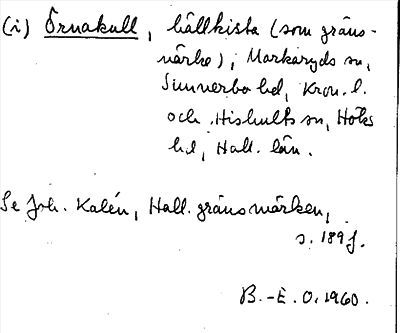 (i) Örnakull, hällkista (som gräns-
märke), Markaryds sn,
Sunnerbo hd, Kron. l.
och Hishults sn, Höks
hd, Hall. län.
Se Joh. Kalén, Hall. gränsmärken,
s. 189 f.
B.-E. O. 1960.